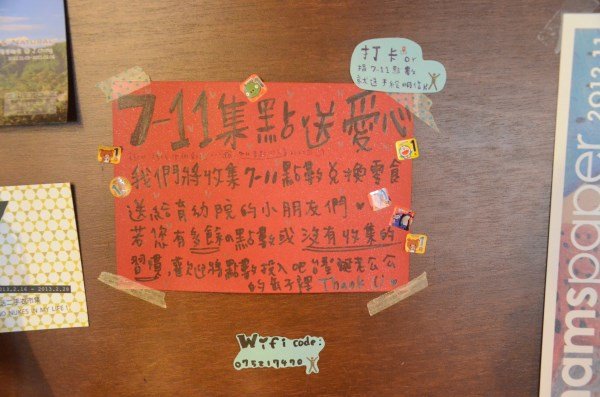 打卡 or
捐7-11點數
就送手繪明信片
7-11集點送愛心
我們將收集7-11點數兌換零食
送給育幼院的小朋友們♥
若您有多餘的點數或沒有收集的
習慣,歡迎將點數投入吧台聖誕老公公
的氣子裡 Thank U
Wifi code:
075217470
2013.2.16 - 2013.2.28
NO NUKES IN MY LIFE!
amspaper 2012.11